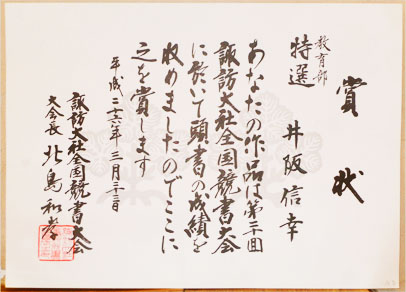 賞状
教育部
特選 井阪信幸
あなたの作品は第二回
諏訪大社全国競書大会
に於いて頭書の成績を
収めましたのでここに
之を賞します
平成二十六年三月二十三日
諏訪大社全国競書大会
大会長 北島和孝